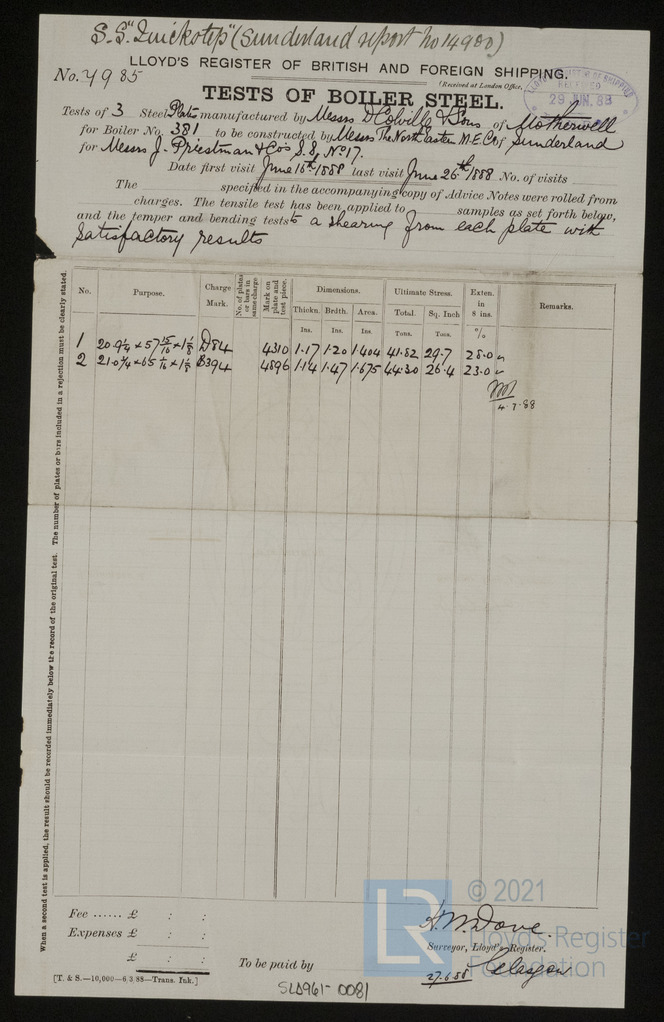 S.S. "Quickstep" (Sunderland report no 14900)
LLOYD'S REGISTER OF BRITISH AND FOREIGN SHIPPING.
No. 4985
(Received at London Office,
LLOYD'S REGISTER OF SHIPPING
RECEIVED
29 JUN. 88
TESTS OF BOILER STEEL.
Tests of 3 Steel Plates manufactured by Messrs D Colville & Sons of Motherwell
for Boiler No. 381 to be constructed by Messrs The North Eastern M.E. Co of Sunderland
for Messrs J. Priestman & Co's S.S. No 17.
Date first visit June 16th 1888 last visit June 26th 1888 No. of visits
The specified in the accompanying copy of Advice Notes were rolled from
charges. The tensile test has been applied to samples as set forth below,
and the temper and bending tests to a shearing from each plate with
satisfactory results
No. Purpose. Charge Mark. No. of plates or bars in same charge Mark on plate and test piece. Dimensions. Ultimate Stress. Exten. in 8 ins. Remarks.
Thickn. Brdth. Area. Total. Sq. Inch
Ins. Ins. Ins. Tons. Tons. %
1 20. 9 1/4 × 57 15/16 × 1 1/8 D84 4310 1.17 1.20 1.404 41.82 29.7 28.0 "
2 21. 0 3/4 × 65 1/16 × 1 1/8 B394 4896 1.14 1.47 1.675 44.30 26.4 23.0 "
4.7.88
When a second test is applied, the result should be recorded immediately below the record of the original test. The number of plates or bars included in a rejection must be clearly stated.
Fee ...... £ : :
Expenses £ : :
£ : :
To be paid by
H. M. Dove.
Surveyor, Lloyd's Register.
27.6.88 Glasgow
[T. & S.—10,000—6/3/88—Trans. Ink.]
SLD961-0081
LR © 2021
Lloyd's Register
Foundation